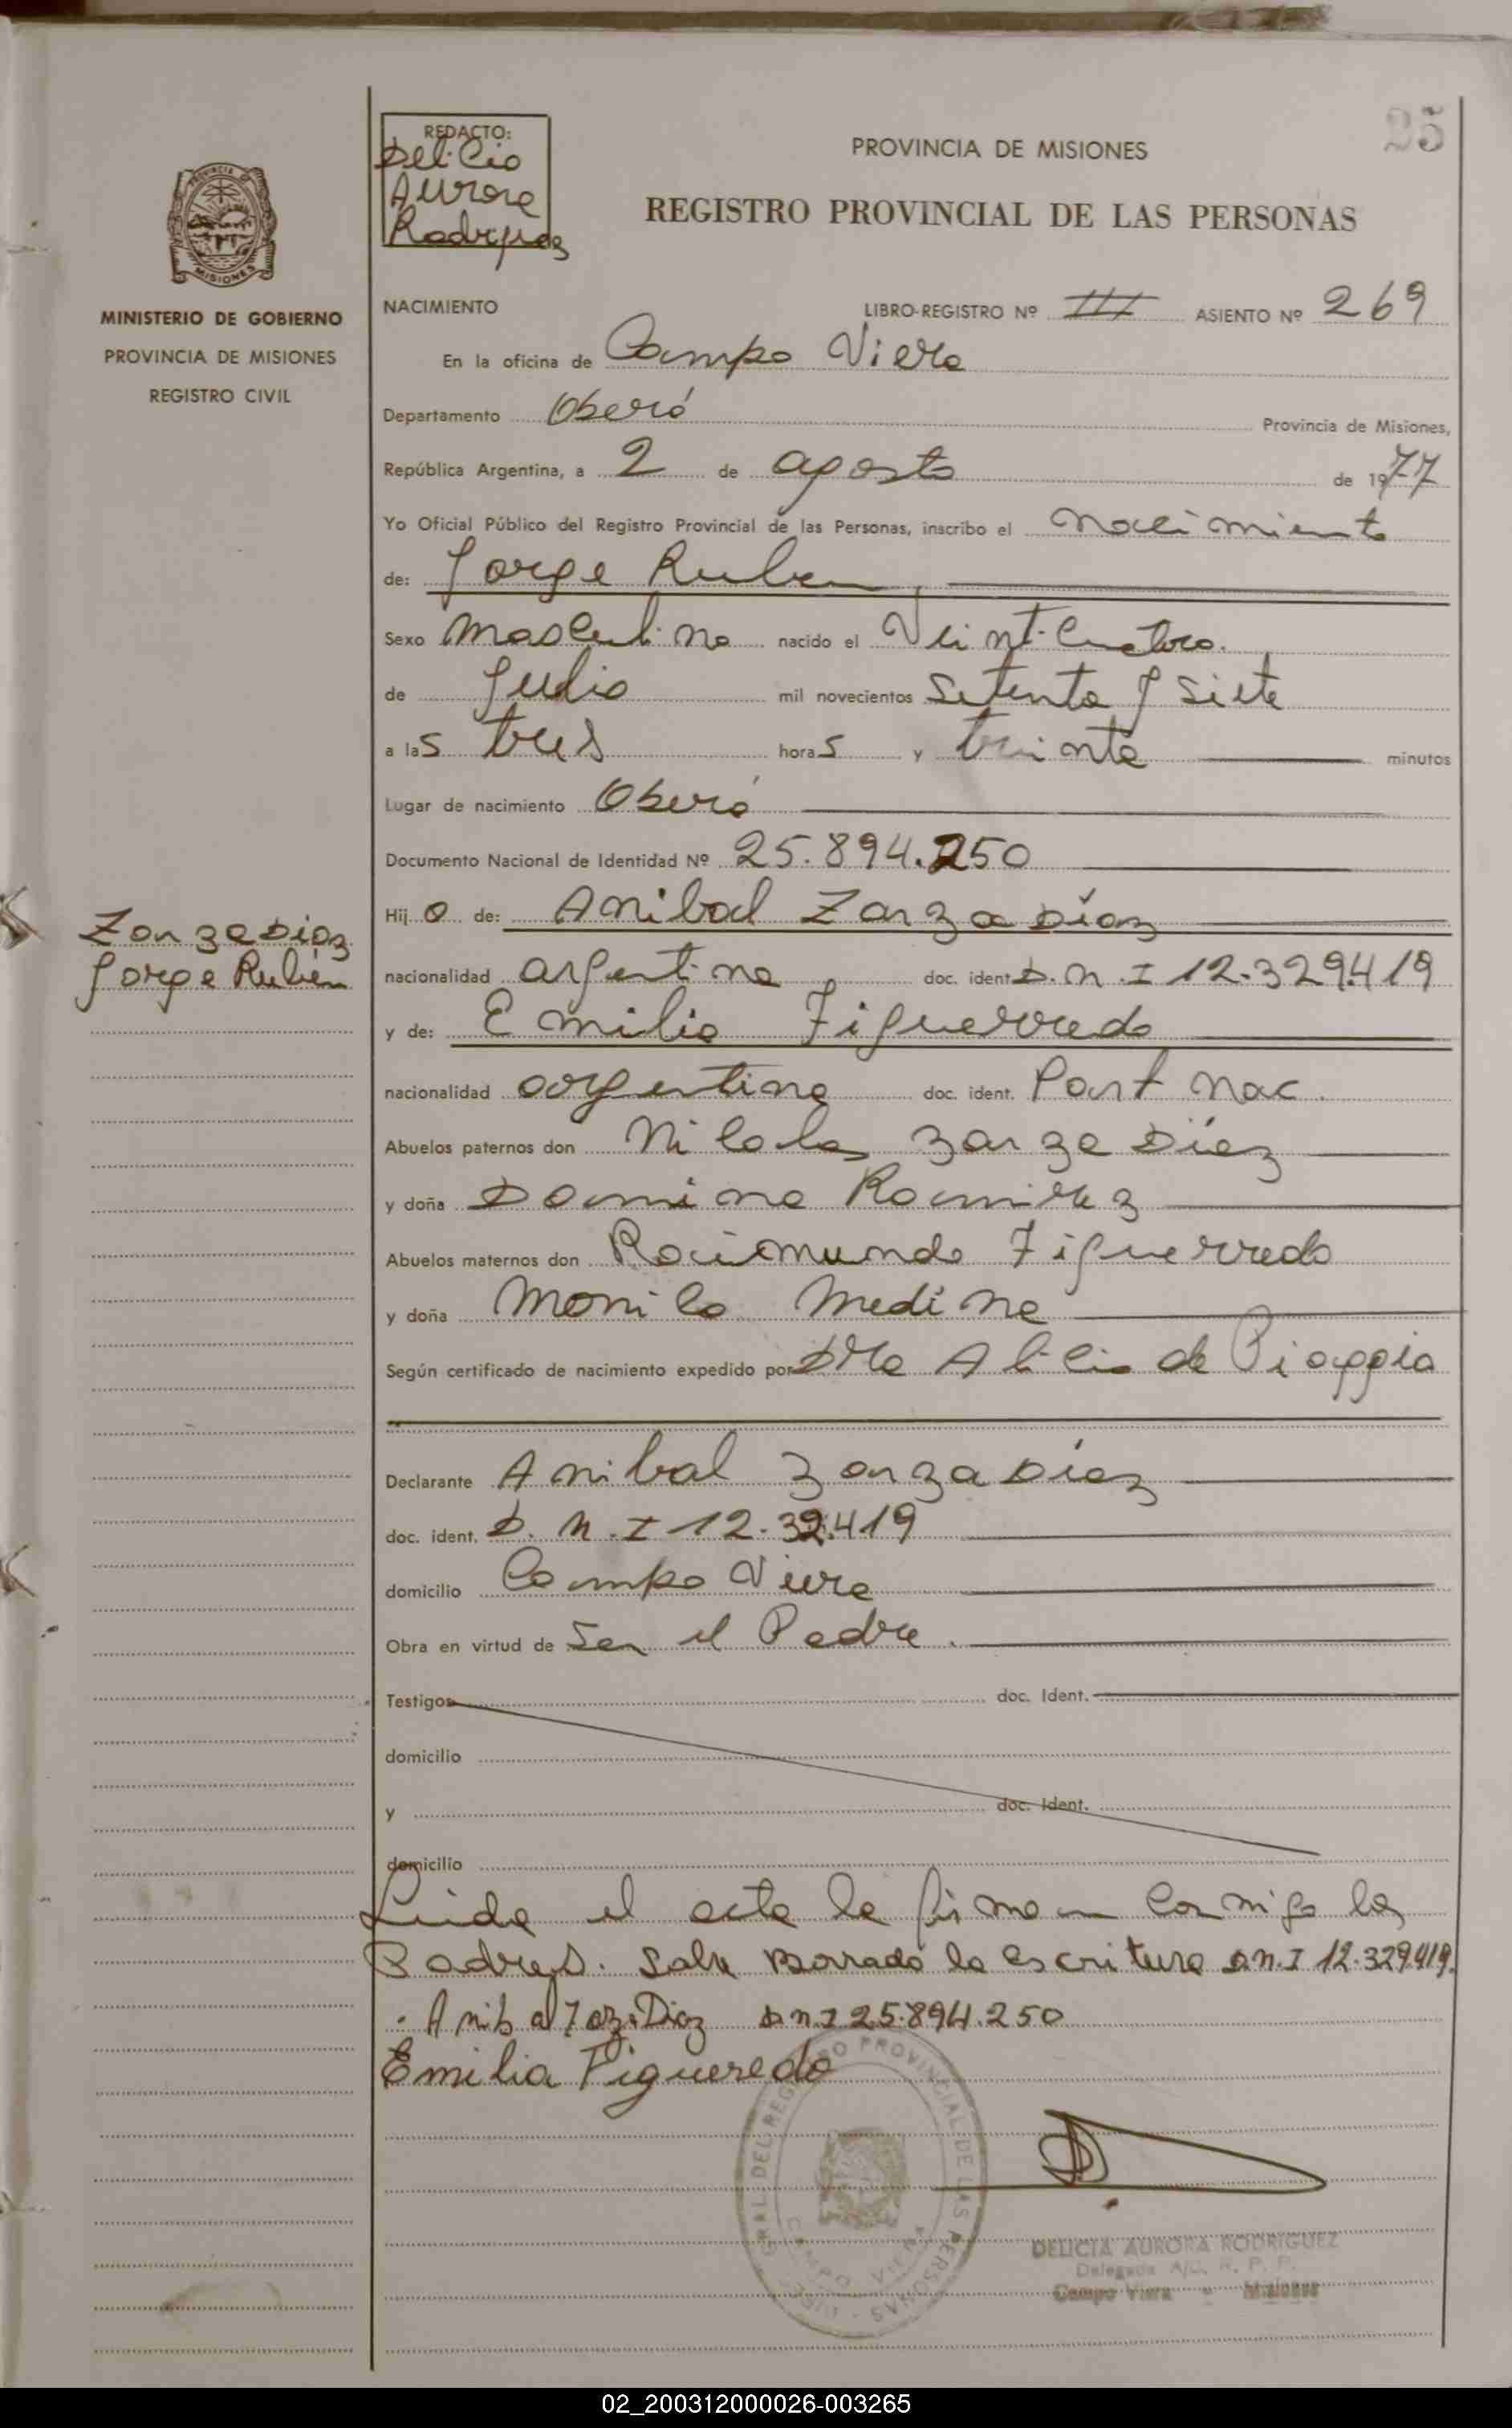 25
REDACTO:
Delicia
Aurora
Rodriguez
PROVINCIA DE MISIONES
REGISTRO PROVINCIAL DE LAS PERSONAS
MISIONES
MINISTERIO DE GOBIERNO
PROVINCIA DE MISIONES
REGISTRO CIVIL
NACIMIENTO LIBRO-REGISTRO Nº III ASIENTO Nº 269
En la oficina de Campo Viera
Departamento Oberá Provincia de Misiones,
República Argentina, a 2 de agosto de 1977
Yo Oficial Público del Registro Provincial de las Personas, inscribo el nacimiento
de: Jorge Ruben
Sexo masculino nacido el Veinticuatro
de Julio mil novecientos setenta y siete
a las tres horas y treinta minutos
Lugar de nacimiento Oberá
Documento Nacional de Identidad Nº 25.894.250
Hijo de: Anibal Zarza Díaz
Zarza Díaz
Jorge Rubén
nacionalidad argentina doc. ident. D.N.I 12.329.419
y de: Emilia Figuerredo
nacionalidad argentina doc. ident. Part nac.
Abuelos paternos don Nicolas Zarza Díaz
y doña Damina Ramirez
Abuelos maternos don Raimundo Figuerredo
y doña Monica Medina
Según certificado de nacimiento expedido por Dra Alicia de Piaggio
Declarante Anibal Zarza Díaz
doc. ident. D.N.I 12.329.419
domicilio Campo Viera
Obra en virtud de ser el Padre.
Testigos doc. Ident.
domicilio
y doc. Ident.
domicilio
Leida el acta la firman conmigo los
Padres. Salve Borrado la escritura D.N.I 12.329.419.
Anibal Zarza Diaz DNI 25.894.250
Emilia Figueredo
GRAL. DEL REGISTRO PROVINCIAL DE LAS PERSONAS
CAMPO VIERA
DELICIA AURORA RODRIGUEZ
Delegada A/C. R. P. P.
Campo Viera - Misiones
02_200312000026-003265